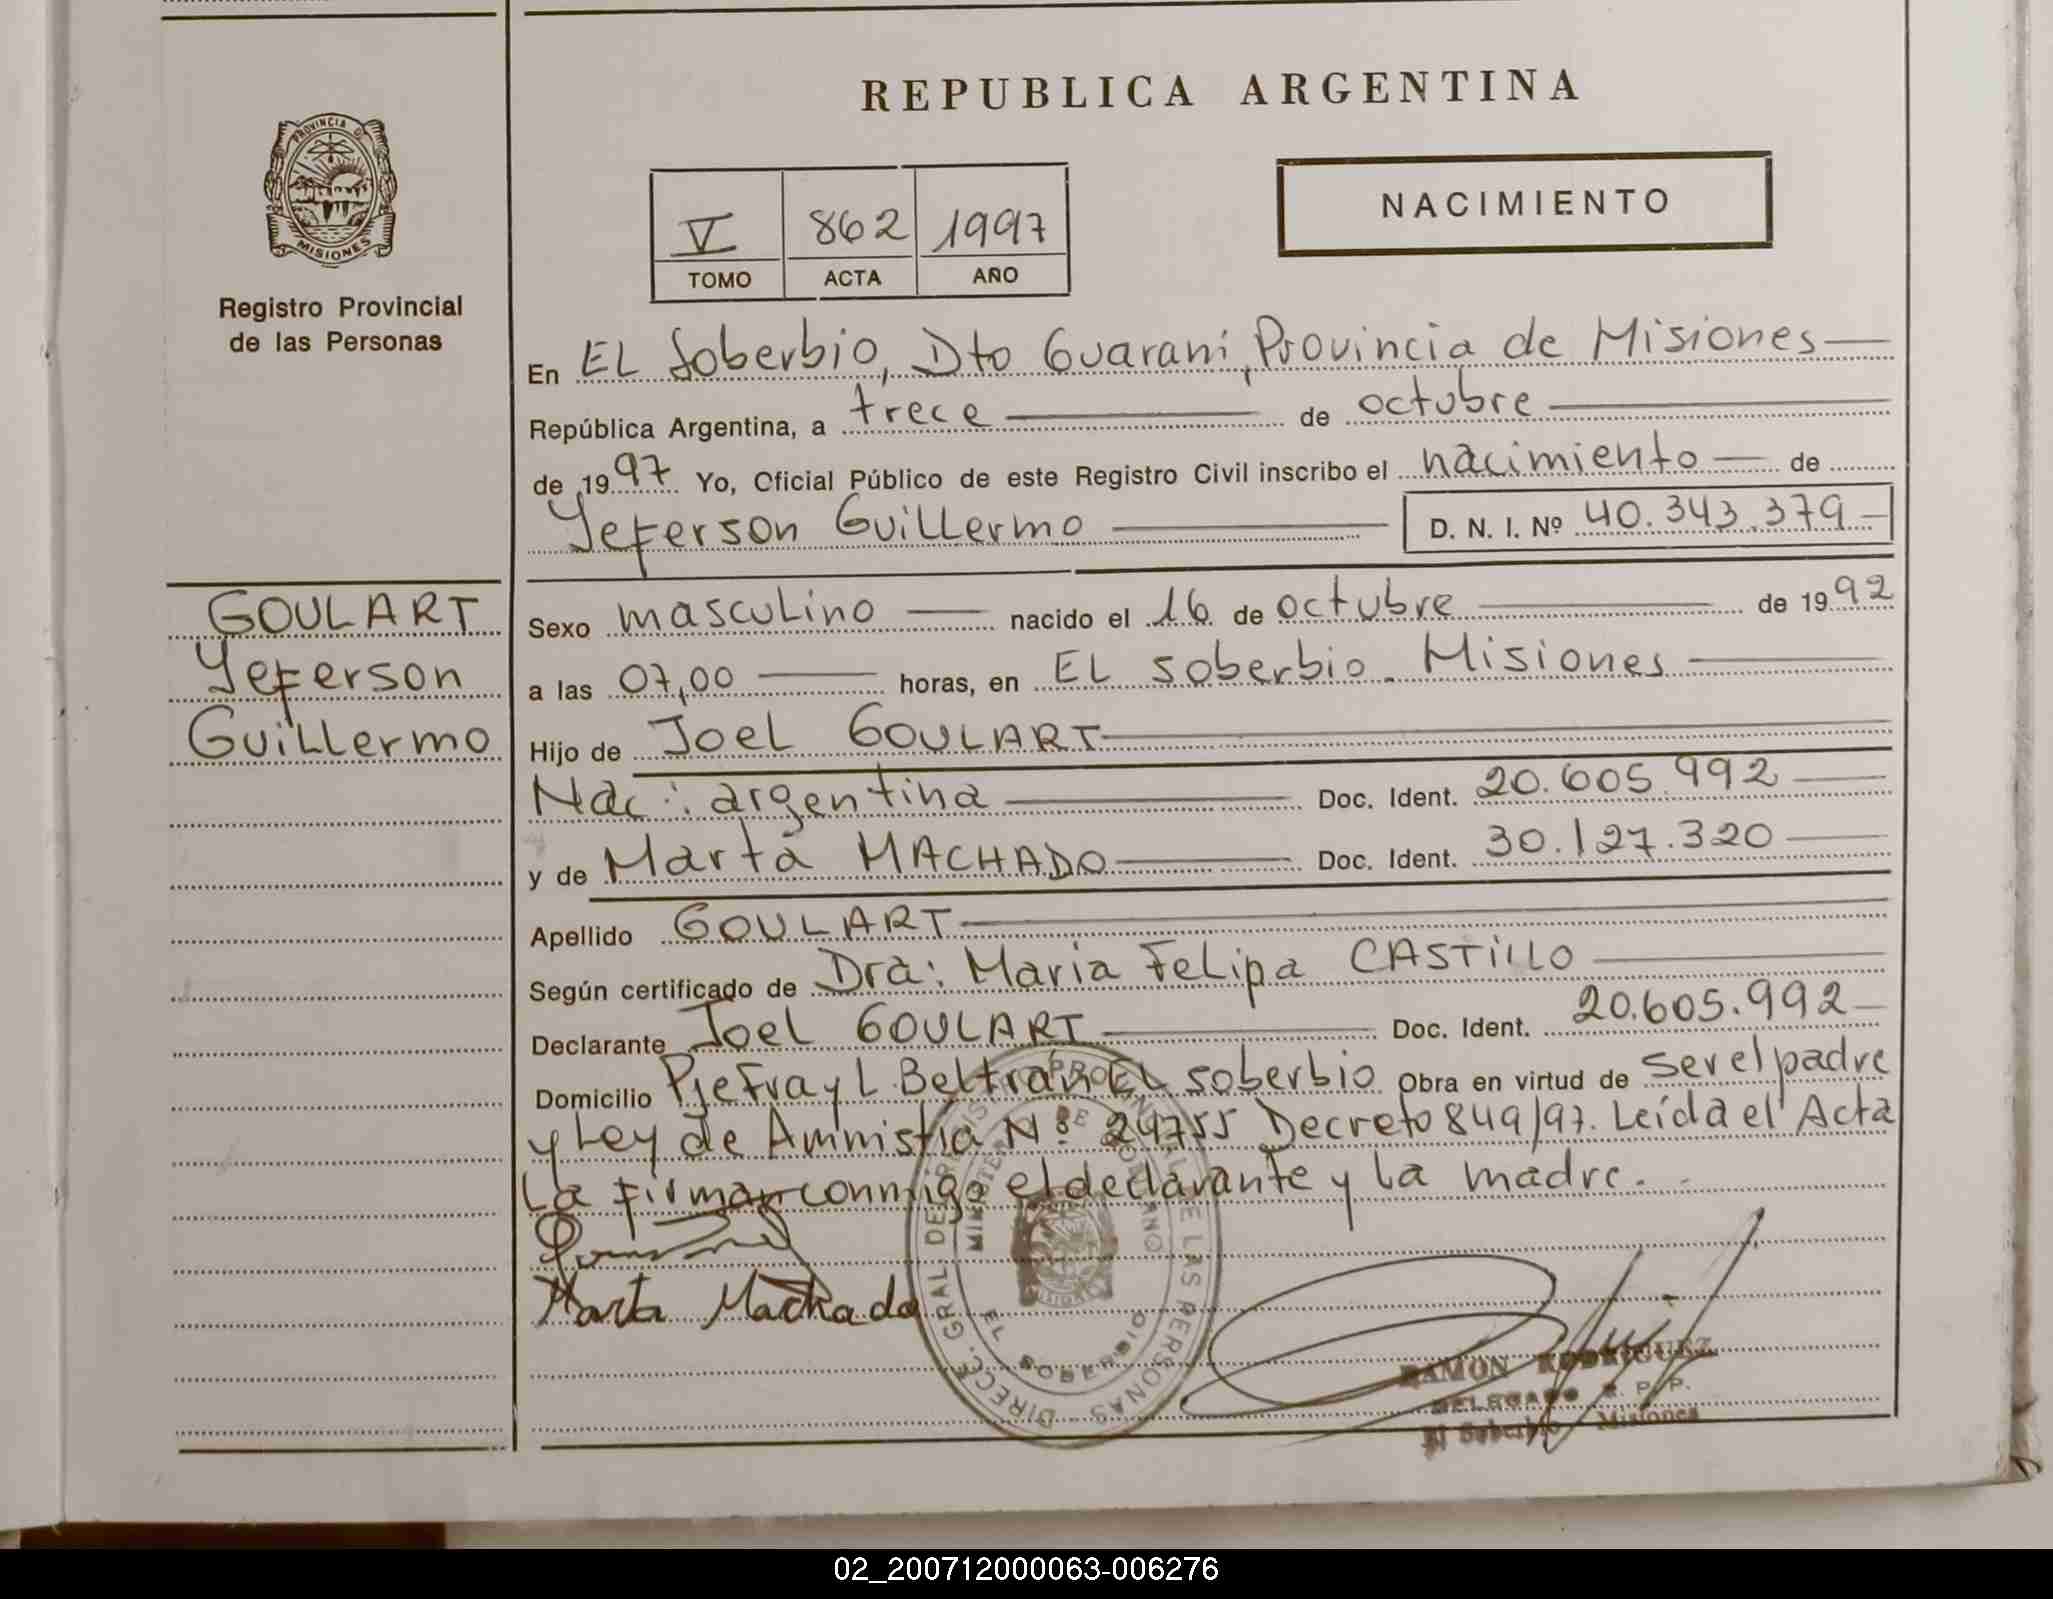 REPUBLICA ARGENTINA
PROVINCIA D
MISIONES
Registro Provincial
de las Personas
V 862 1997
TOMO ACTA AÑO
NACIMIENTO
En EL Soberbio, Dto Guarani, Provincia de Misiones
República Argentina, a trece de octubre
de 1997 Yo, Oficial Público de este Registro Civil inscribo el nacimiento de
Yeferson Guillermo D. N. I. Nº 40.343.379
GOULART
Yeferson
Guillermo
Sexo masculino nacido el 16 de octubre de 1992
a las 07,00 horas, en EL Soberbio. Misiones
Hijo de Joel GOULART
Nac: argentina Doc. Ident. 20.605.992
y de Marta MACHADO Doc. Ident. 30.127.320
Apellido GOULART
Según certificado de Dra: Maria Felipa CASTILLO
Declarante Joel GOULART Doc. Ident. 20.605.992
Domicilio Pje Fray L. Beltrán EL Soberbio Obra en virtud de ser el padre
y Ley de Amnistía Nº 24755 Decreto 849/97. Leída el Acta
La firman conmigo el declarante y la madre.
Marta Machado
DIRECC. GRAL DE REGISTRO PROVINCIAL DE LAS PERSONAS
EL SOBERBIO
RAMON RODRIGUEZ
DELEGADO R. P. P.
El Soberbio Misiones
02_200712000063-006276